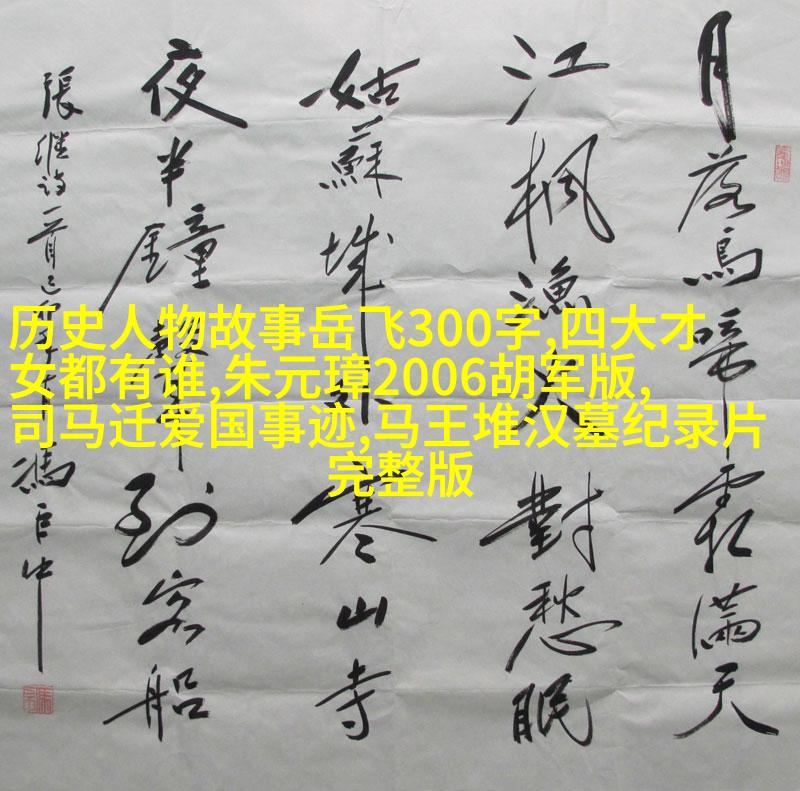 月落烏啼霜滿天
江楓漁火對愁眠
姑蘇城外寒山寺
夜半鐘聲到客船
張继詩一首
历史人物故事岳飞300字,四大才
女都有谁,朱元璋2006胡军版,
司马迁爱国事迹,马王堆汉墓纪录片
完整版